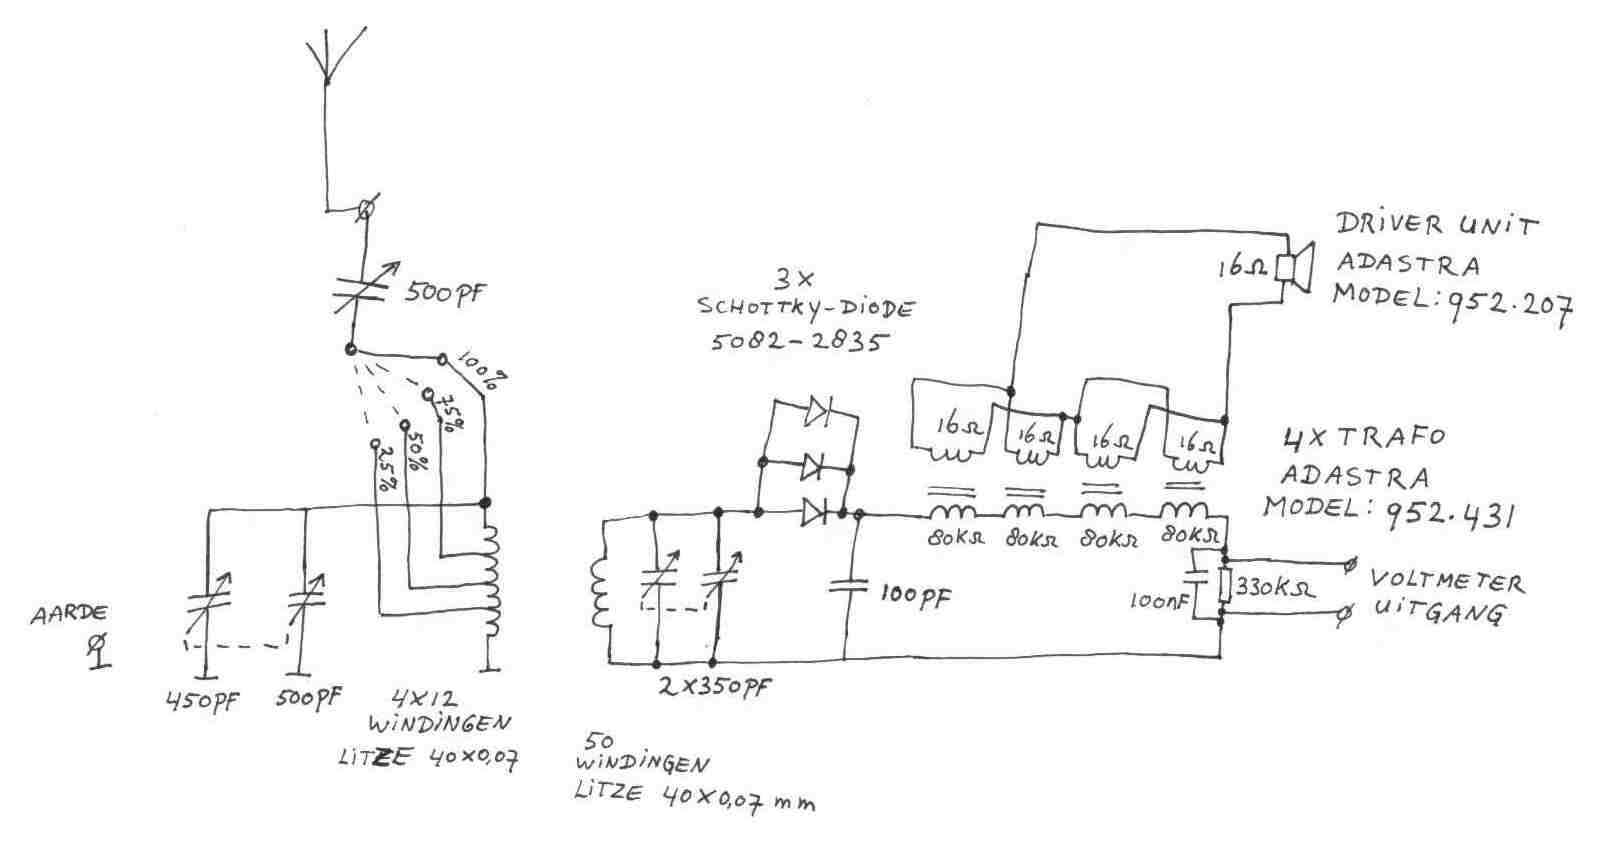 500PF
100%
75%
50%
25%
AARDE
450PF
500PF
4X12
WINDINGEN
LITZE 40X0,07
50
WINDINGEN
LITZE 40X0,07 mm
2X350PF
3X
SCHOTTKY-DIODE
5082-2835
100PF
16Ω
16Ω
16Ω
16Ω
80KΩ
80KΩ
80KΩ
80KΩ
16Ω
DRIVER UNIT
ADASTRA
MODEL: 952.207
4X TRAFO
ADASTRA
MODEL: 952.431
100nF
330KΩ
VOLTMETER
UITGANG